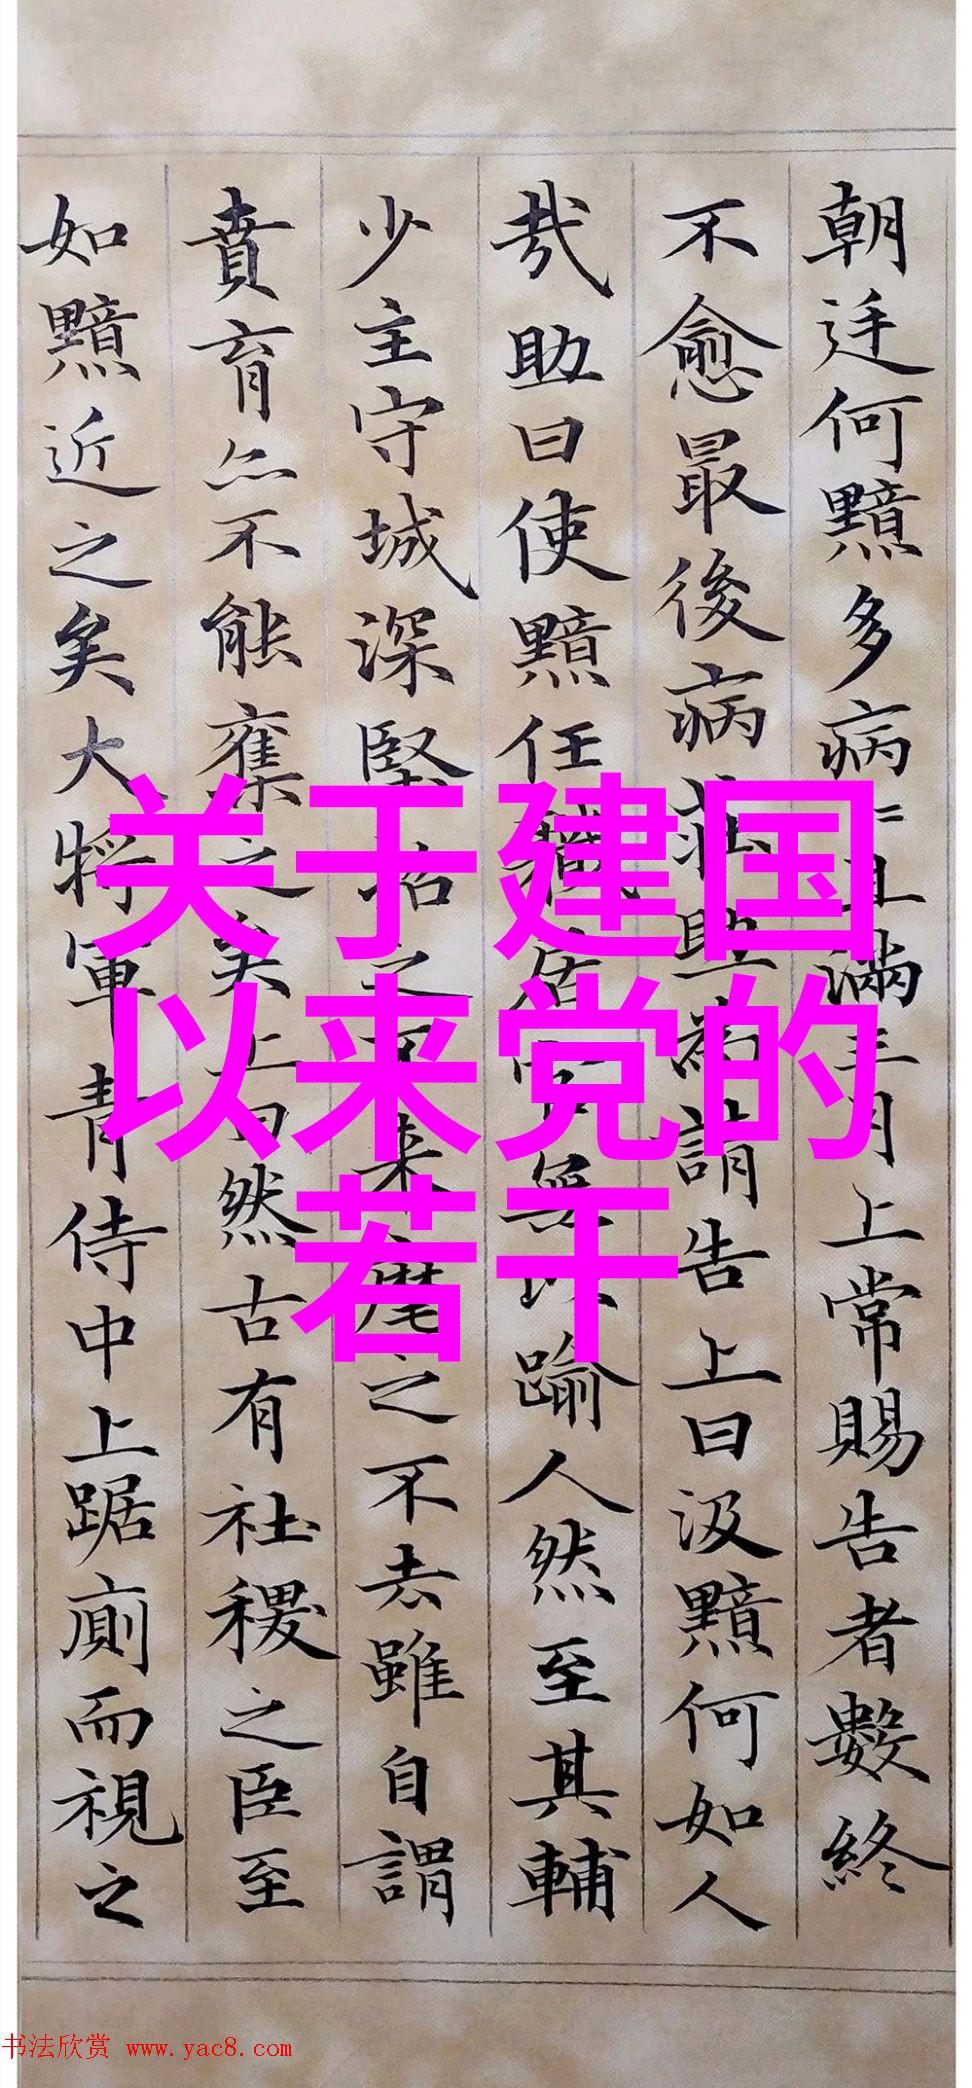 朝廷何黯多病病且滿三月上常賜告者數終
不愈最後病莊助為請告上曰汲黯何如人
哉助曰使黯任職居官無以踰人然至其輔
少主守城深堅招之不来麾之不去雖自謂
賁育亦不能奪之矣上曰然古有社稷之臣至
如黯近之矣大將軍青侍中上踞廁而視之
关于建国
以来党的
若干
书法欣赏 www.yac8.com